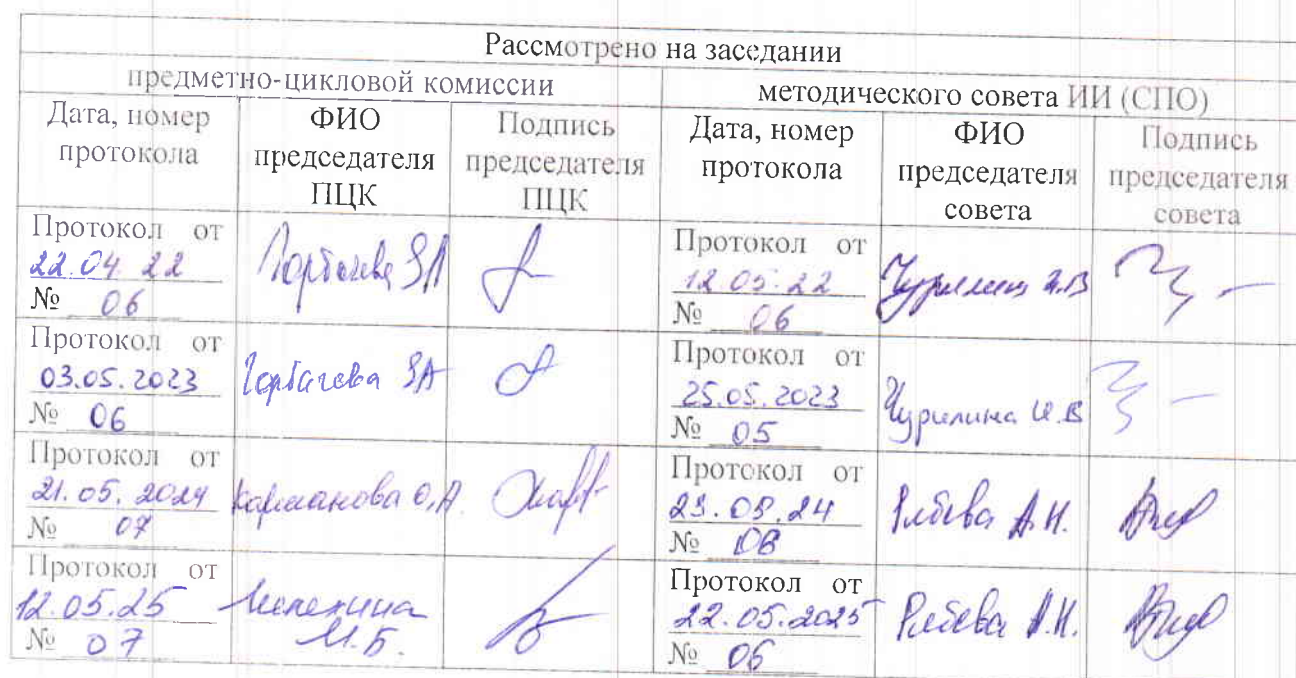 Рассмотрено на заседании
предметно-цикловой комиссии
методического совета ИИ (СПО)
Дата, номер протокола
ФИО председателя ПЦК
Подпись председателя ПЦК
Дата, номер протокола
ФИО председателя совета
Подпись председателя совета
Протокол от
22.04.22
№ 06
Горбачева ЗА
Протокол от
12.05.22
№ 06
Чурилина И.В
Протокол от
03.05.2023
№ 06
Горбачева ЗА
Протокол от
25.05.2023
№ 05
Чурилина И.В
Протокол от
21.05.2024
№ 07
Карманова О.А.
Протокол от
23.05.24
№ 06
А.Н.
Протокол от
12.05.25
№ 07
М.Б.
Протокол от
22.05.2025
№ 06
А.Н.